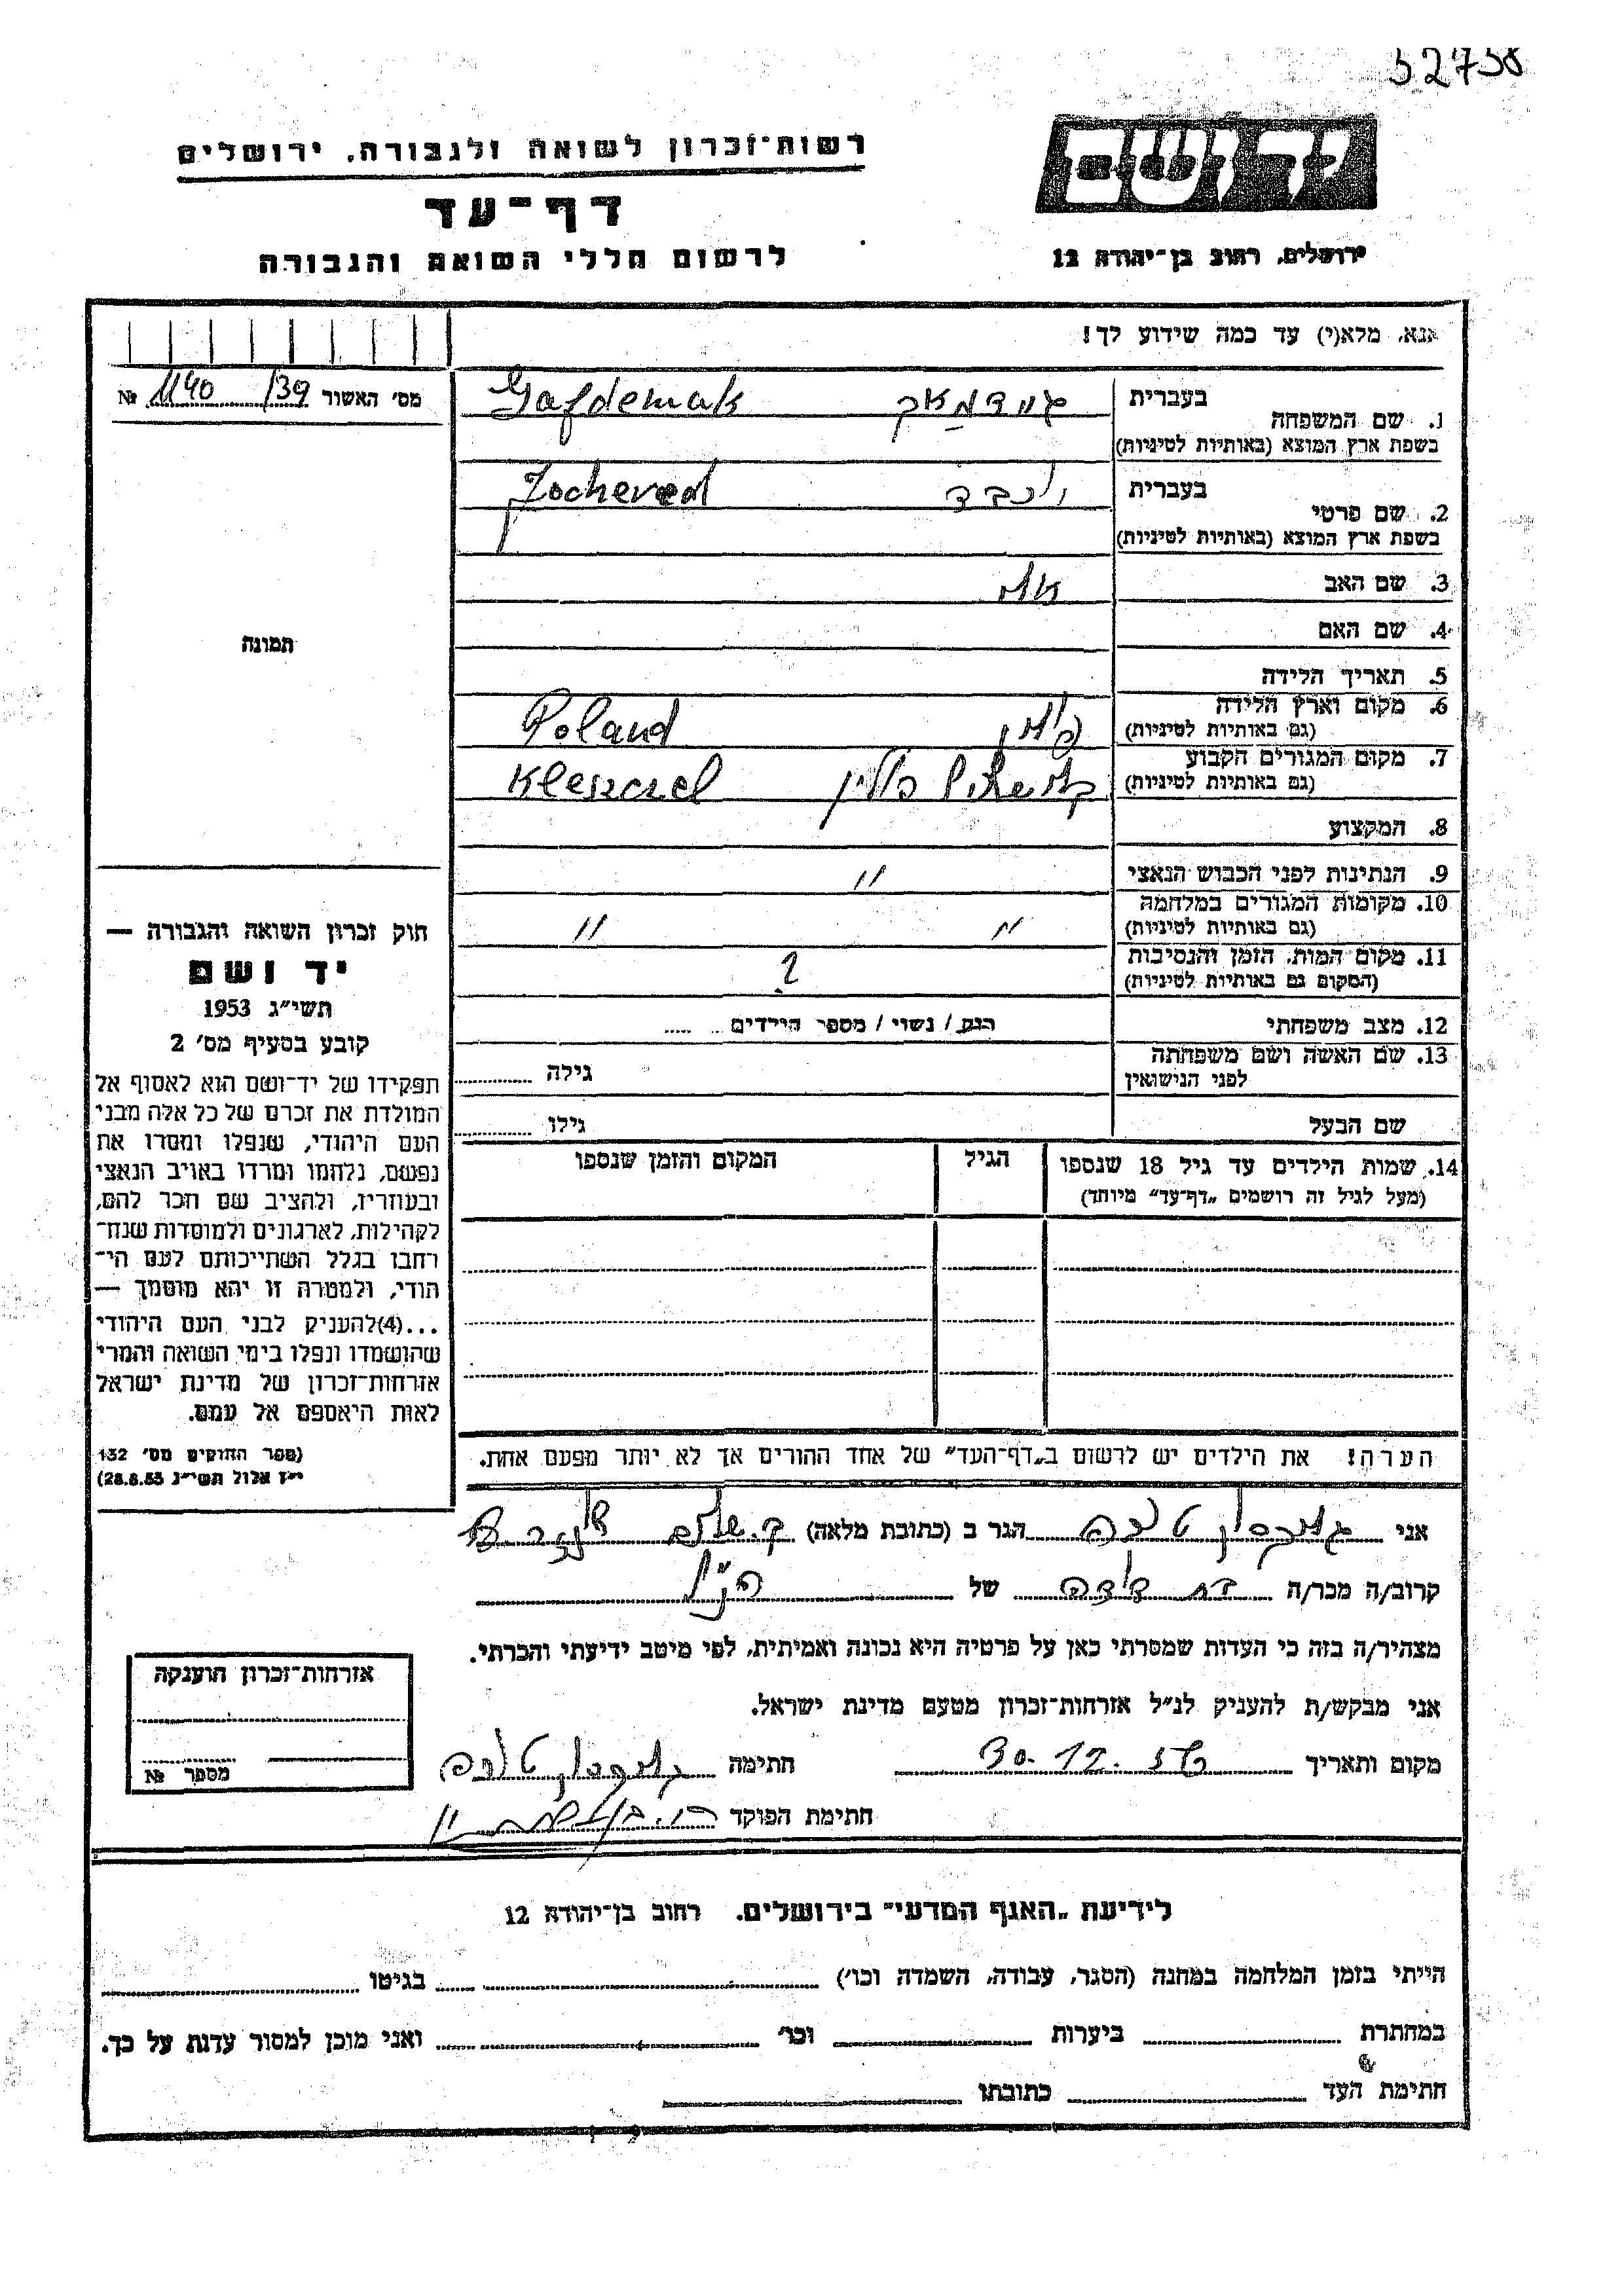 52738
רשות־זכרון לשואה ולגבורה, ירושלים
דף־עד
לרשום חללי השואה והגבורה
יד ושם
ירושלים, רחוב בן־יהודה 12
אנא, מלא(י) עד כמה שידוע לך!
מס׳ האשור 1140 /39 №
1. שם המשפחה בעברית
Gafdemak
בשפת ארץ המוצא (באותיות לטיניות)
2. שם פרטי בעברית יוכבד Jocheved
בשפת ארץ המוצא (באותיות לטיניות)
3. שם האב
4. שם האם
5. תאריך הלידה
6. מקום וארץ הלידה פולין Poland
(גם באותיות לטיניות)
7. מקום המגורים הקבוע פולין
(גם באותיות לטיניות)
8. המקצוע
9. הנתינות לפני הכבוש הנאצי "
10. מקומות המגורים במלחמה " "
(גם באותיות לטיניות)
11. מקום המות, הזמן והנסיבות ?
(המקום גם באותיות לטיניות)
12. מצב משפחתי רווק / נשוי / מספר הילדים
13. שם האשה ושם משפחתה לפני הנישואין גילה
שם הבעל גילו
14. שמות הילדים עד גיל 18 שנספו הגיל המקום והזמן שנספו
(מעל לגיל זה רושמים „דף־עד” מיוחד)
תמונה
חוק זכרון השואה והגבורה —
יד ושם
תשי״ג 1953
קובע בסעיף מס׳ 2
תפקידו של יד־ושם הוא לאסוף אל
המולדת את זכרם של כל אלה מבני
העם היהודי, שנפלו ומסרו את
נפשם, נלחמו ומרדו באויב הנאצי
ובעוזריו, ולהציב שם וזכר להם,
לקהילות, לארגונים ולמוסדות שנח־
רחבו בגלל השתייכותם לעם הי־
הודי, ולמטרה זו יהא מוסמך —
...(4)להעניק לבני העם היהודי
שהושמדו ונפלו בימי השואה והמרי
אזרחות־זכרון של מדינת ישראל
לאות היאספם אל עמם.
(ספר החוקים מס׳ 132
י״ז אלול תשי״ג 28.8.53)
הערה! את הילדים יש לרשום ב„דף־העד” של אחד ההורים אך לא יותר מפעם אחת.
אני טובה הגר ב (כתובת מלאה)
קרוב/ה מכר/ה בת דודה של הנ״ל
מצהיר/ה בזה כי העדות שמסרתי כאן על פרטיה היא נכונה ואמיתית, לפי מיטב ידיעתי והכרתי.
אני מבקש/ת להעניק לנ״ל אזרחות־זכרון מטעם מדינת ישראל.
מקום ותאריך 30.12. חתימה טובה
חתימת הפוקד
אזרחות־זכרון הוענקה
מספר №
לידיעת „האגף המדעי” בירושלים, רחוב בן־יהודה 12
הייתי בזמן המלחמה במחנה (הסגר, עבודה, השמדה וכו׳) בגיטו
במחתרת ביערות וכו׳ ואני מוכן למסור עדות על כך.
חתימת העד כתובתו